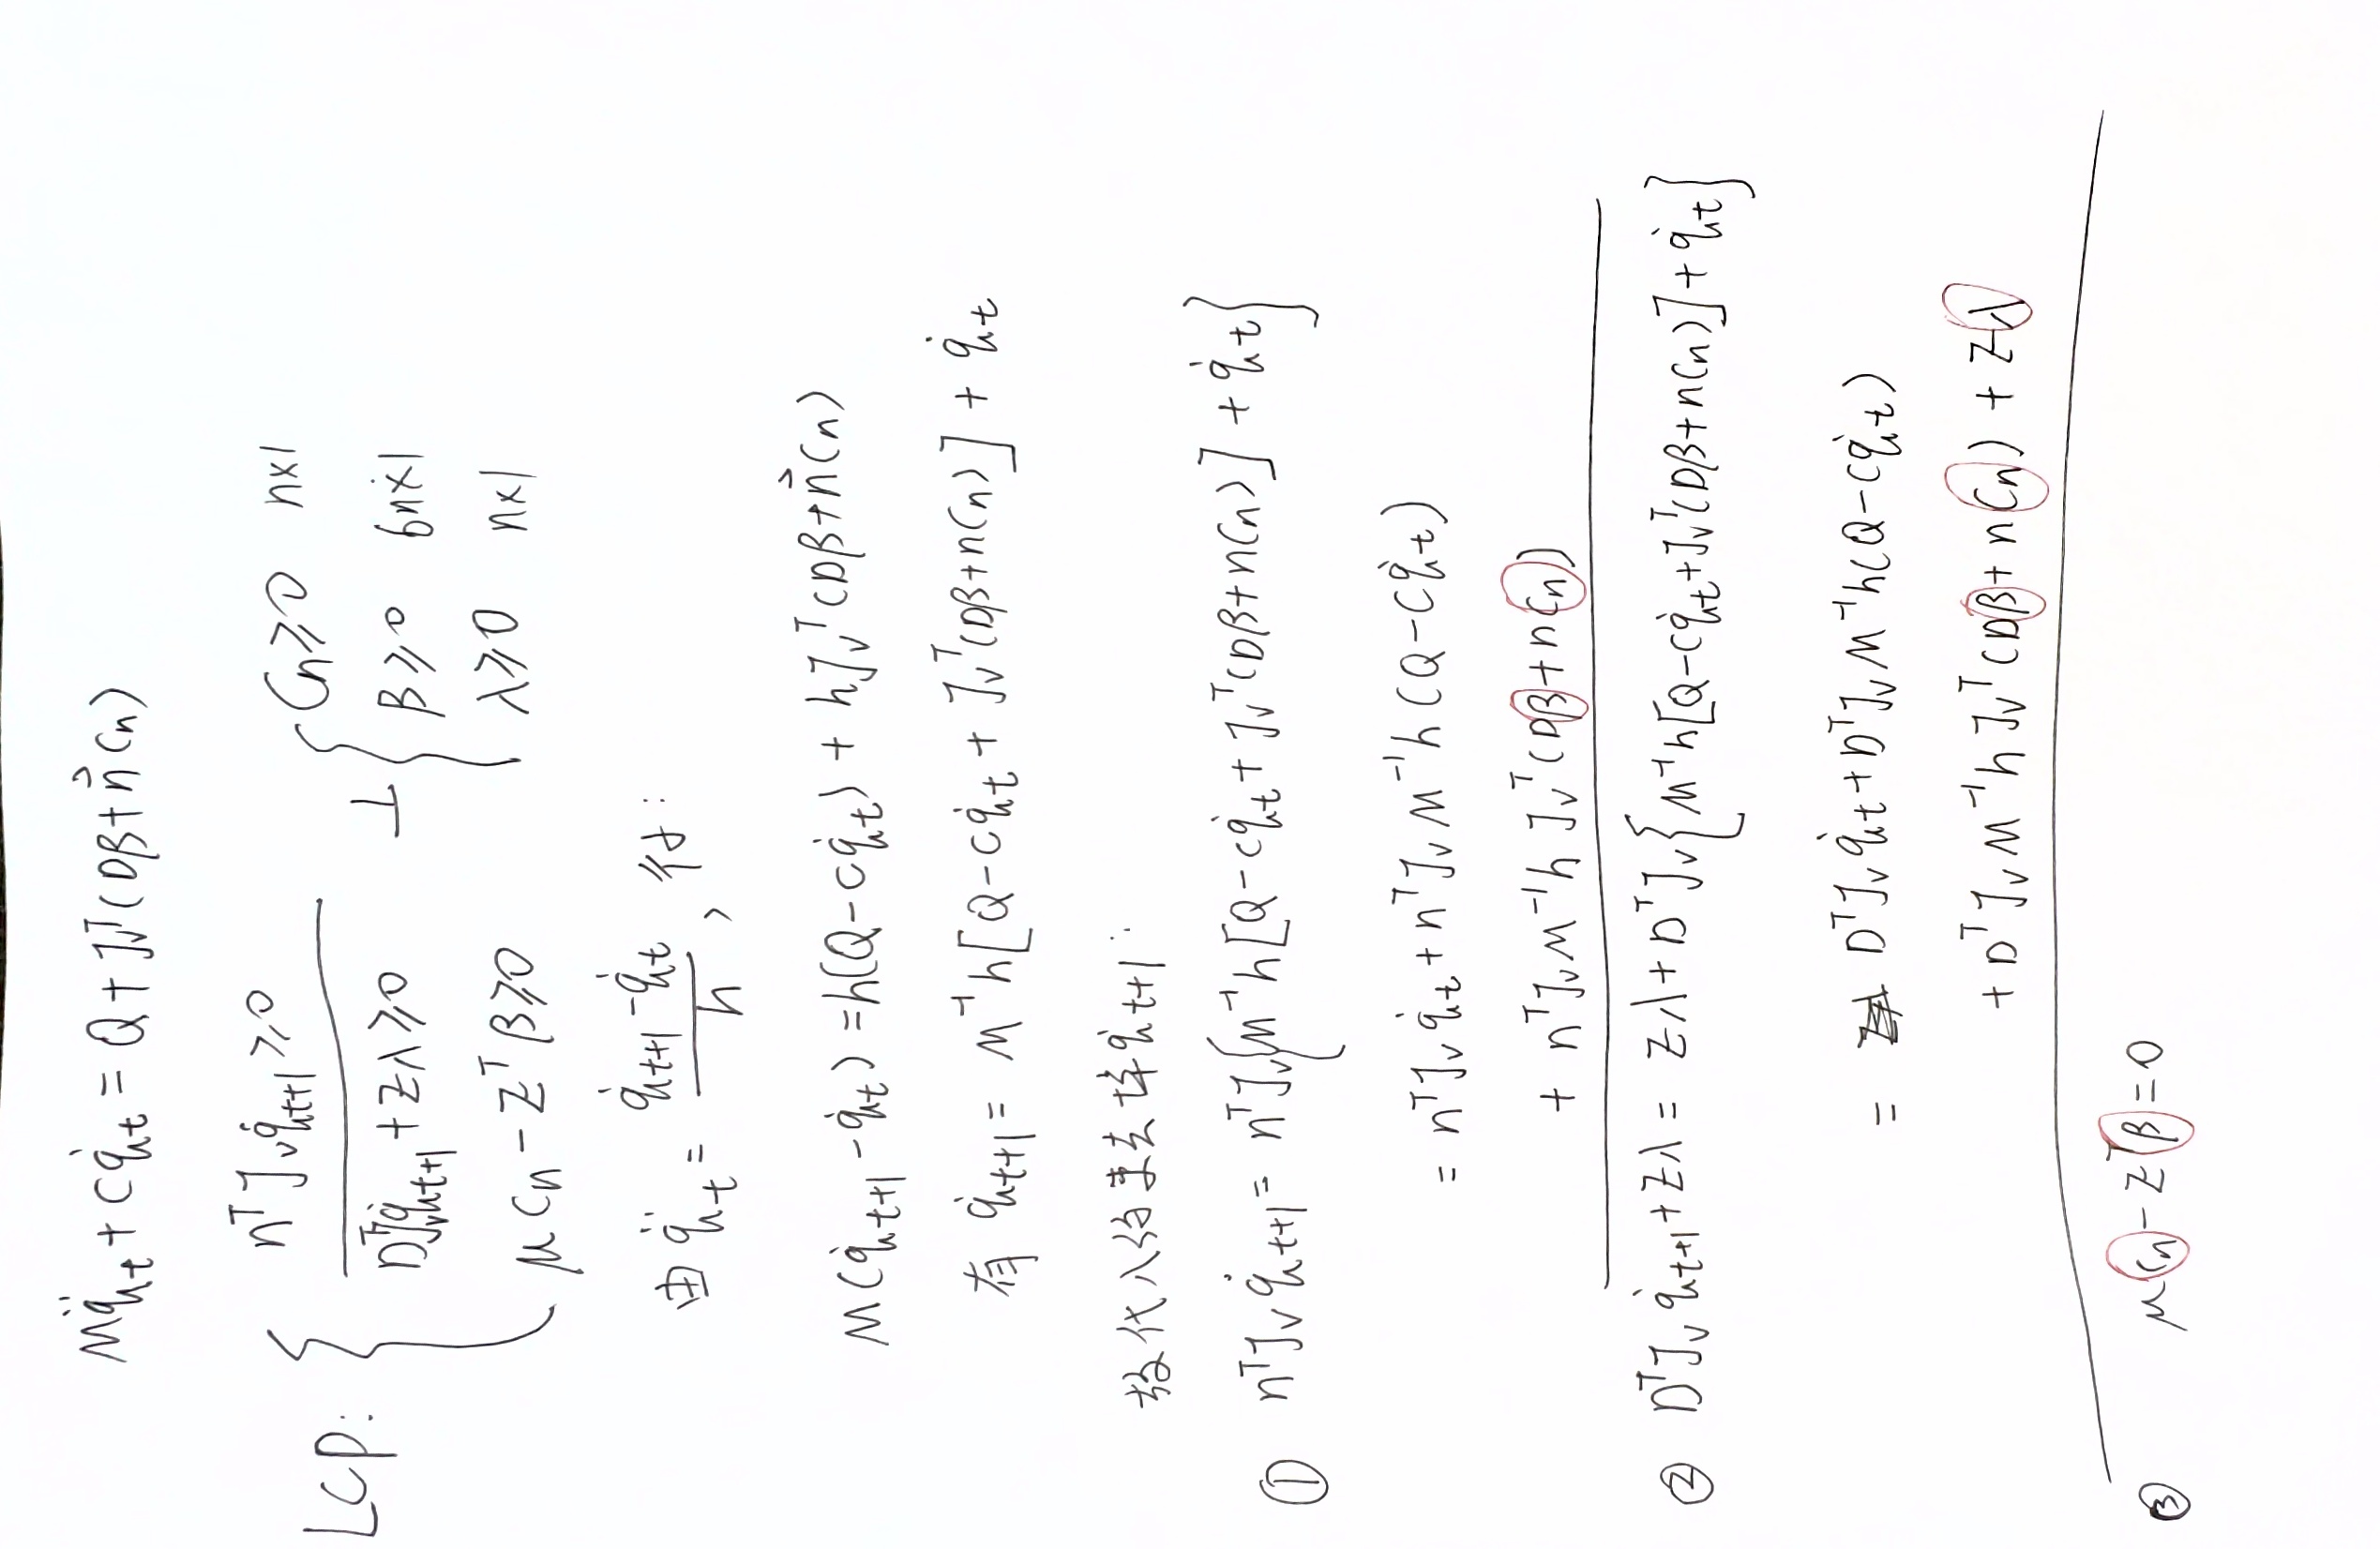 Mq̈ₜ + Cq̇ₜ = Q + Jᵥᵀ(Dβ + n⃗Cn)
LCP: { nᵀJᵥq̇ₜ₊₁ ≥ 0 ⊥ { Cn ≥ 0 n×1
DᵀJᵥq̇ₜ₊₁ + Zλ ≥ 0 β ≥ 0 6n×1
μCn − Zᵀβ ≥ 0 λ ≥ 0 n×1
由 q̈ₜ = (q̇ₜ₊₁ − q̇ₜ)/h , 得:
M(q̇ₜ₊₁ − q̇ₜ) = h(Q − Cq̇ₜ) + hJᵥᵀ(Dβ + n⃗Cn)
有 q̇ₜ₊₁ = M⁻¹h[Q − Cq̇ₜ + Jᵥᵀ(Dβ + nCn)] + q̇ₜ
故代入约束去掉q̇ₜ₊₁:
① nᵀJᵥq̇ₜ₊₁ = nᵀJᵥ{M⁻¹h[Q − Cq̇ₜ + Jᵥᵀ(Dβ + nCn)] + q̇ₜ}
= nᵀJᵥq̇ₜ + nᵀJᵥM⁻¹h(Q − Cq̇ₜ)
+ nᵀJᵥM⁻¹h Jᵥᵀ(Dβ + nCn)
② DᵀJᵥq̇ₜ₊₁ + Zλ = Zλ + DᵀJᵥ{M⁻¹h[Q − Cq̇ₜ + Jᵥᵀ(Dβ + nCn)] + q̇ₜ}
= DᵀJᵥq̇ₜ + DᵀJᵥM⁻¹h(Q − Cq̇ₜ)
+ DᵀJᵥM⁻¹h Jᵥᵀ(Dβ + nCn) + Zλ
③ μCn − Zᵀβ = 0